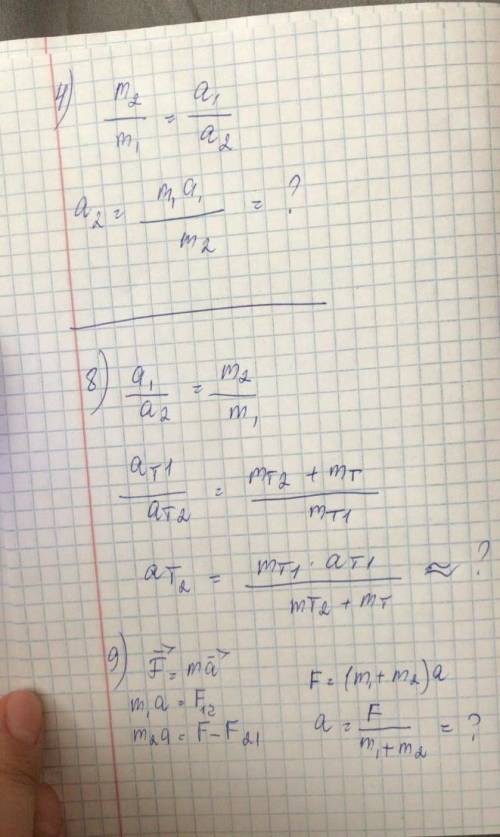 4) m₂/m₁ = a₁/a₂
a₂ = m₁a₁/m₂ = ?
8) a₁/a₂ = m₂/m₁
aт1/aт2 = (mт2 + mт)/mт1
aт₂ = (mт1 · aт1)/(mт2 + mт) ≈ ?
9) F⃗ = ma⃗
m₁a = F₁₂
m₂a = F - F₂₁
F = (m₁ + m₂)a
a = F/(m₁ + m₂) = ?